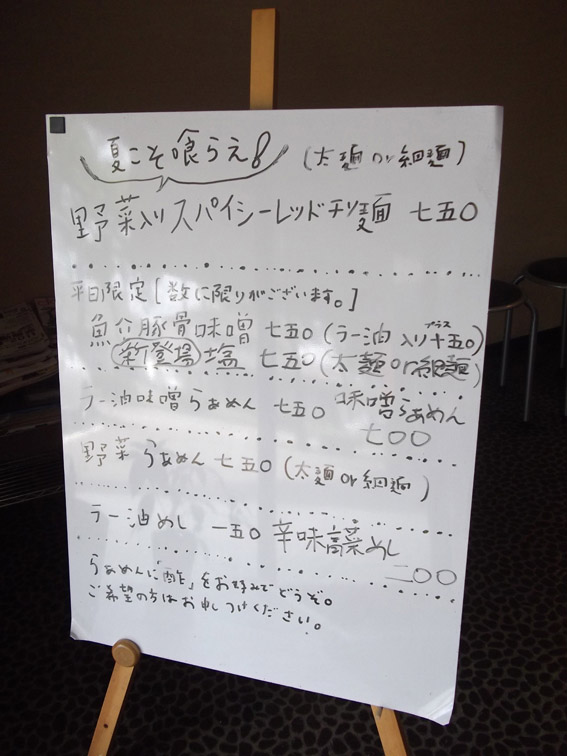 夏こそ喰らえ! (太麺or細麺)
野菜入りスパイシーレッドチリ麺 七五〇
平日限定[数に限りがございます。]
魚介豚骨味噌 七五〇(ラー油入りプラス十五〇)
新登場 塩 七五〇(太麺or細麺)
ラー油味噌らぁめん 七五〇 味噌らぁめん
七〇〇
野菜らぁめん 七五〇(太麺or細麺)
ラー油めし 一五〇 辛味高菜めし
二〇〇
らぁめんに「酢」をお好みでどうぞ。
ご希望の方はお申しつけください。